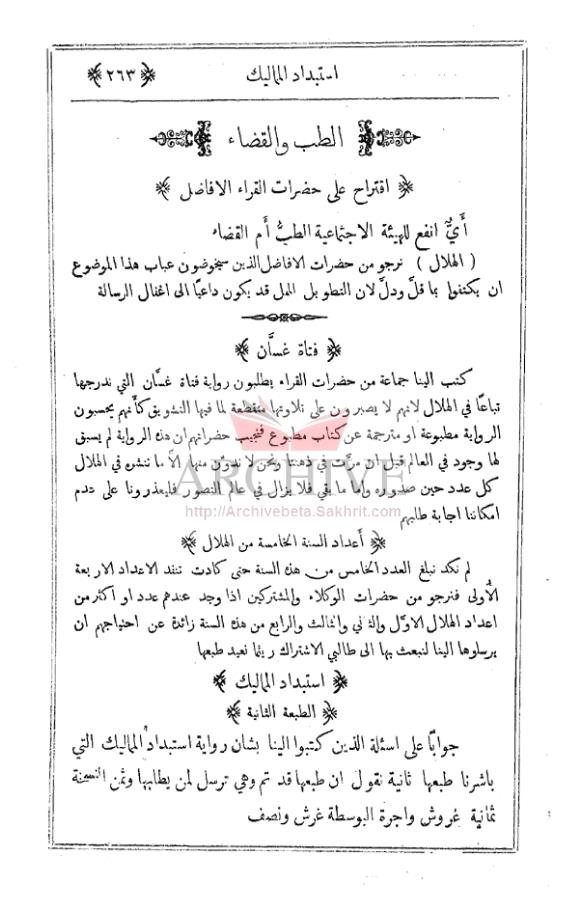 استبداد المماليك
﴿٢٦٣﴾
الطب والقضاء
﴿ اقتراح على حضرات القراء الافاضل ﴾
أَيٌّ انفع للهيئة الاجتماعية الطبُّ أَم القضاء
( الهلال ) نرجو من حضرات الافاضل الذين سيخوضون عباب هذا الموضوع
ان يكتفوا بما قلَّ ودلَّ لان التطويل الممل قد يكون داعيًا الى اغفال الرسالة
﴿ فتاة غسَّان ﴾
كتب الينا جماعة من حضرات القراء يطلبون رواية فتاة غسَّان التي ندرجها
تباعًا في الهلال لانهم لا يصبرون على تلاوتها متقطعة لما فيها التشويق كأنهم يحسبون
الرواية مطبوعة او مترجمة عن كتاب مطبوع فنجيب حضراتهم ان هذه الرواية لم يسبق
لها وجود في العالم قبل ان مرَّت في ذهننا ونحن لا ندوّن منها الاَّ ما ننشره في الهلال
كل عدد حين صدوره واما ما بقي فلا يزال في عالم التصور فليعذرونا على عدم
امكاننا اجابة طلبهم
ARCHIVE
http://Archivebeta.Sakhrit.com
﴿ أَعداد السنة الخامسة من الهلال ﴾
لم نكد نبلغ العدد الخامس من هذه السنة حتى كادت تنفد الاعداد الاربعة
الأُولى فنرجو من حضرات الوكلاء والمشتركين اذا وجد عندهم عدد او اكثر من
اعداد الهلال الاوَّل والثاني والثالث والرابع من هذه السنة زائدة عن احتياجهم ان
يرسلوها الينا لنبعث بها الى طالبي الاشتراك ريثما نعيد طبعها
﴿ استبداد المماليك ﴾
﴿ الطبعة الثانية ﴾
جوابًا على اسئلة الذين كتبوا الينا بشان رواية استبداد المماليك التي
باشرنا طبعها ثانية نقول ان طبعها قد تم وهي ترسل لمن يطلبها وثمن النسخة
ثمانية غروش واجرة البوسطة غرش ونصف